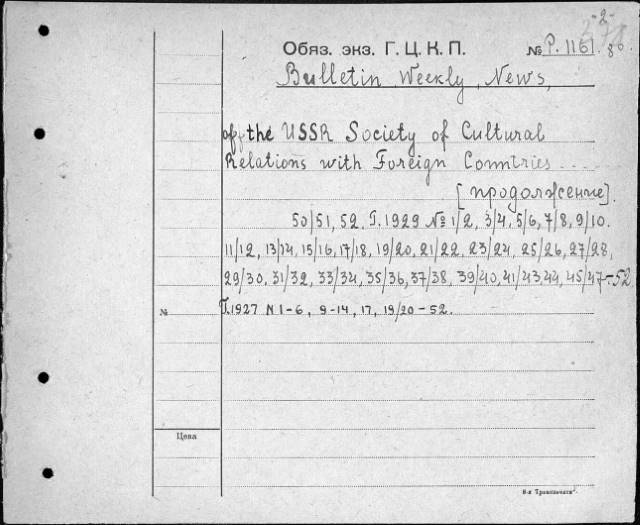 -2-
Обяз. экз. Г. Ц. К. П.
№ P. 1161. 80
Bulletin Weekly News,
of the USSR Society of Cultural
Relations with Foreign Countries ....
[продолжение].
50/51, 52. Г. 1929 № 1/2, 3/4, 5/6, 7/8, 9/10.
11/12, 13/14, 15/16, 17/18, 19/20, 21/22, 23/24, 25/26, 27/28,
29/30, 31/32, 33/34, 35/36, 37/38, 39/40, 41/43, 44, 45/47-52
№
Г. 1927 N 1-6, 9-14, 17, 19/20-52.
Цена